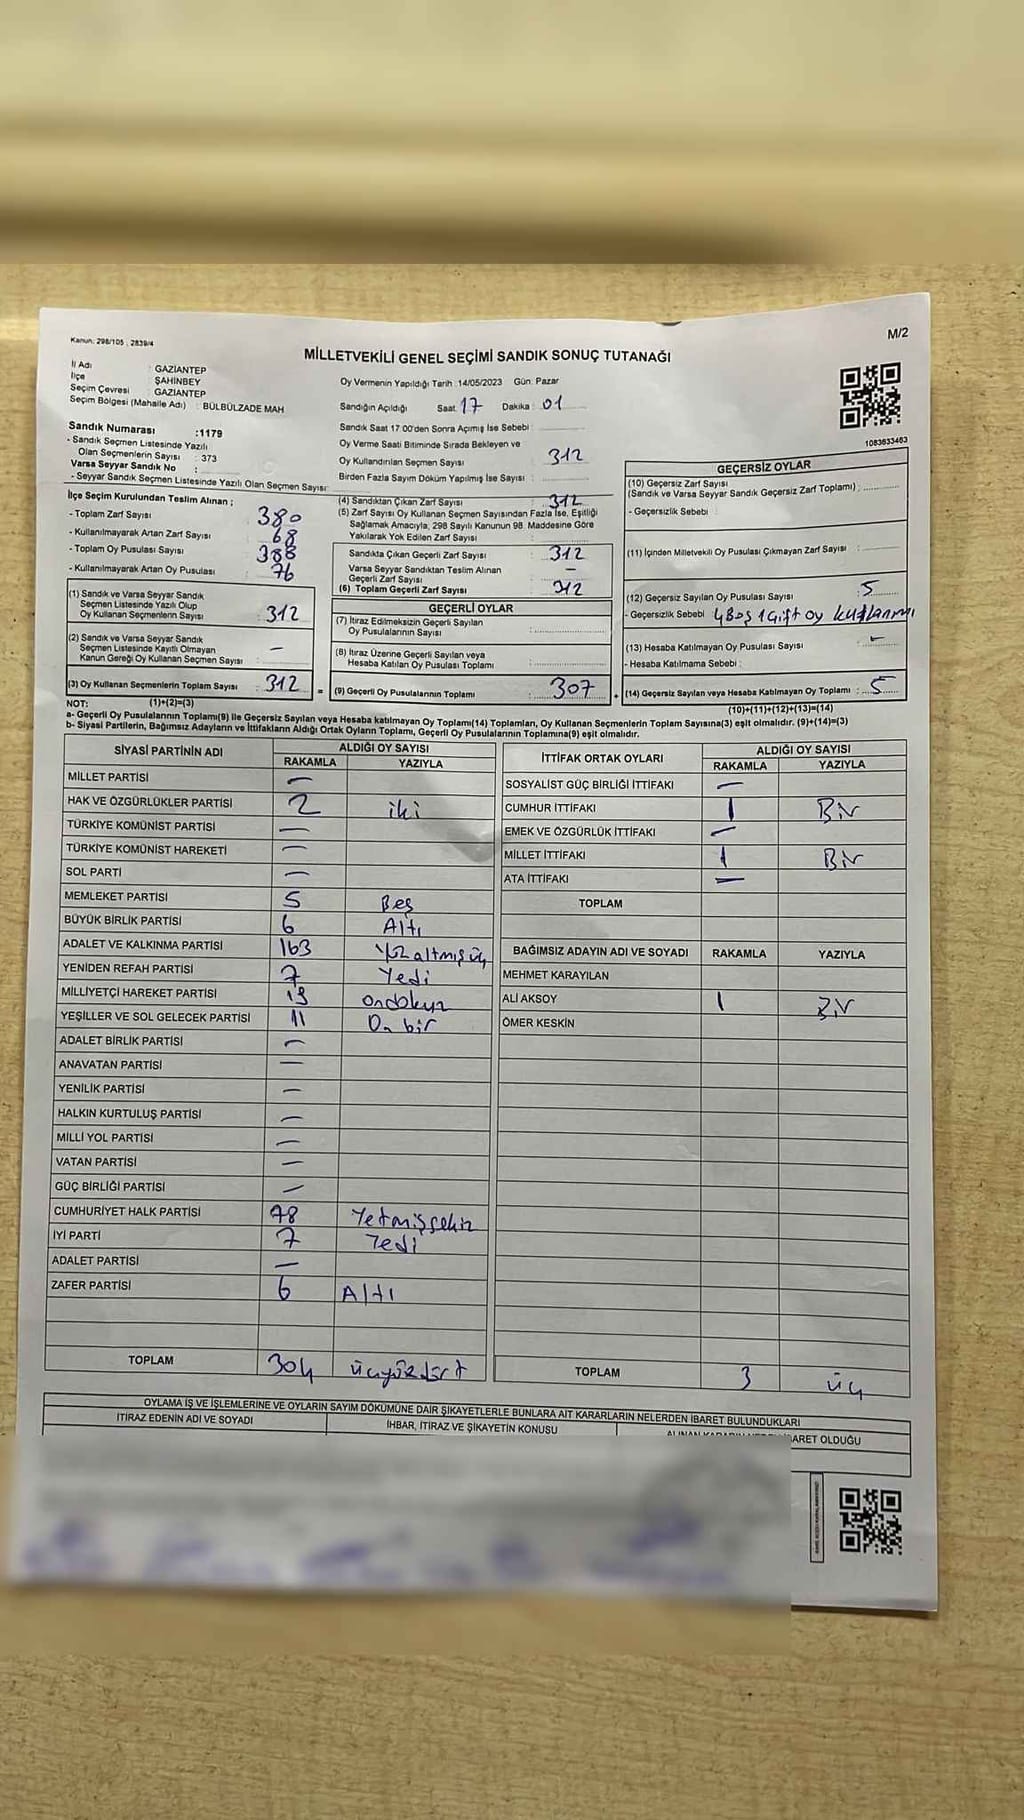 Kanun: 298/105 , 2839/4
M/2
MİLLETVEKİLİ GENEL SEÇİMİ SANDIK SONUÇ TUTANAĞI
İl Adı : GAZİANTEP
İlçe ŞAHİNBEY
Seçim Çevresi GAZİANTEP
Seçim Bölgesi (Mahalle Adı) : BÜLBÜLZADE MAH
Sandık Numarası :1179
- Sandık Seçmen Listesinde Yazılı
Olan Seçmenlerin Sayısı : 373
Varsa Seyyar Sandık No :
- Seyyar Sandık Seçmen Listesinde Yazılı Olan Seçmen Sayısı:
Oy Vermenin Yapıldığı Tarih :14/05/2023 Gün: Pazar
Sandığın Açıldığı Saat 17 Dakika : 01
Sandık Saat 17:00'den Sonra Açımış İse Sebebi :
Oy Verme Saati Bitiminde Sırada Bekleyen ve
Oy Kullandırılan Seçmen Sayısı : 312
Birden Fazla Sayım Döküm Yapılmış İse Sayısı :
1083633463
İlçe Seçim Kurulundan Teslim Alınan ;
- Toplam Zarf Sayısı : 380
- Kullanılmayarak Artan Zarf Sayısı : 68
- Toplam Oy Pusulası Sayısı : 388
- Kullanılmayarak Artan Oy Pusulası : 76
(1) Sandık ve Varsa Seyyar Sandık
Seçmen Listesinde Yazılı Olup
Oy Kullanan Seçmenlerin Sayısı : 312
(2) Sandık ve Varsa Seyyar Sandık
Seçmen Listesinde Kayıtlı Olmayan
Kanun Gereği Oy Kullanan Seçmen Sayısı : –
(3) Oy Kullanan Seçmenlerin Toplam Sayısı : 312
(1)+(2)=(3)
(4) Sandıktan Çıkan Zarf Sayısı : 312
(5) Zarf Sayısı Oy Kullanan Seçmen Sayısından Fazla İse, Eşitliği
Sağlamak Amacıyla, 298 Sayılı Kanunun 98. Maddesine Göre
Yakılarak Yok Edilen Zarf Sayısı :
Sandıkta Çıkan Geçerli Zarf Sayısı : 312
Varsa Seyyar Sandıktan Teslim Alınan
Geçerli Zarf Sayısı : –
(6) Toplam Geçerli Zarf Sayısı : 312
GEÇERLİ OYLAR
(7) İtiraz Edilmeksizin Geçerli Sayılan
Oy Pusulalarının Sayısı :
(8) İtiraz Üzerine Geçerli Sayılan veya
Hesaba Katılan Oy Pusulası Toplamı :
= (9) Geçerli Oy Pusulalarının Toplamı : 307
GEÇERSİZ OYLAR
(10) Geçersiz Zarf Sayısı
(Sandık ve Varsa Seyyar Sandık Geçersiz Zarf Toplamı) :
- Geçersizlik Sebebi :
(11) İçinden Milletvekili Oy Pusulası Çıkmayan Zarf Sayısı :
(12) Geçersiz Sayılan Oy Pusulası Sayısı : 5
- Geçersizlik Sebebi : 4 Boş 1 Çift oy kullanımı
(13) Hesaba Katılmayan Oy Pusulası Sayısı : –
- Hesaba Katılmama Sebebi :
+ (14) Geçersiz Sayılan veya Hesaba Katılmayan Oy Toplamı : 5
(10)+(11)+(12)+(13)=(14)
NOT:
a- Geçerli Oy Pusulalarının Toplamı(9) ile Geçersiz Sayılan veya Hesaba katılmayan Oy Toplamı(14) Toplamları, Oy Kullanan Seçmenlerin Toplam Sayısına(3) eşit olmalıdır. (9)+(14)=(3)
b- Siyasi Partilerin, Bağımsız Adayların ve İttifakların Aldığı Ortak Oyların Toplamı, Geçerli Oy Pusulalarının Toplamına(9) eşit olmalıdır.
SİYASİ PARTİNİN ADI ALDIĞI OY SAYISI
RAKAMLA YAZIYLA
MİLLET PARTİSİ –
HAK VE ÖZGÜRLÜKLER PARTİSİ 2 iki
TÜRKİYE KOMÜNİST PARTİSİ –
TÜRKİYE KOMÜNİST HAREKETİ –
SOL PARTİ –
MEMLEKET PARTİSİ 5 Beş
BÜYÜK BİRLİK PARTİSİ 6 Altı
ADALET VE KALKINMA PARTİSİ 163 Yüz altmış üç
YENİDEN REFAH PARTİSİ 7 Yedi
MİLLİYETÇİ HAREKET PARTİSİ 19 ondokuz
YEŞİLLER VE SOL GELECEK PARTİSİ 11 On bir
ADALET BİRLİK PARTİSİ –
ANAVATAN PARTİSİ –
YENİLİK PARTİSİ –
HALKIN KURTULUŞ PARTİSİ –
MİLLİ YOL PARTİSİ –
VATAN PARTİSİ –
GÜÇ BİRLİĞİ PARTİSİ –
CUMHURİYET HALK PARTİSİ 78 Yetmişsekiz
İYİ PARTİ 7 Yedi
ADALET PARTİSİ –
ZAFER PARTİSİ 6 Altı
TOPLAM 304 üçyüzdört
İTTİFAK ORTAK OYLARI ALDIĞI OY SAYISI
RAKAMLA YAZIYLA
SOSYALİST GÜÇ BİRLİĞİ İTTİFAKI –
CUMHUR İTTİFAKI 1 Bir
EMEK VE ÖZGÜRLÜK İTTİFAKI –
MİLLET İTTİFAKI 1 Bir
ATA İTTİFAKI –
TOPLAM
BAĞIMSIZ ADAYIN ADI VE SOYADI RAKAMLA YAZIYLA
MEHMET KARAYILAN
ALİ AKSOY 1 Bir
ÖMER KESKİN
TOPLAM 3 üç
OYLAMA İŞ VE İŞLEMLERİNE VE OYLARIN SAYIM DÖKÜMÜNE DAİR ŞİKAYETLERLE BUNLARA AİT KARARLARIN NELERDEN İBARET BULUNDUKLARI
İTİRAZ EDENİN ADI VE SOYADI İHBAR, İTİRAZ VE ŞİKAYETİN KONUSU